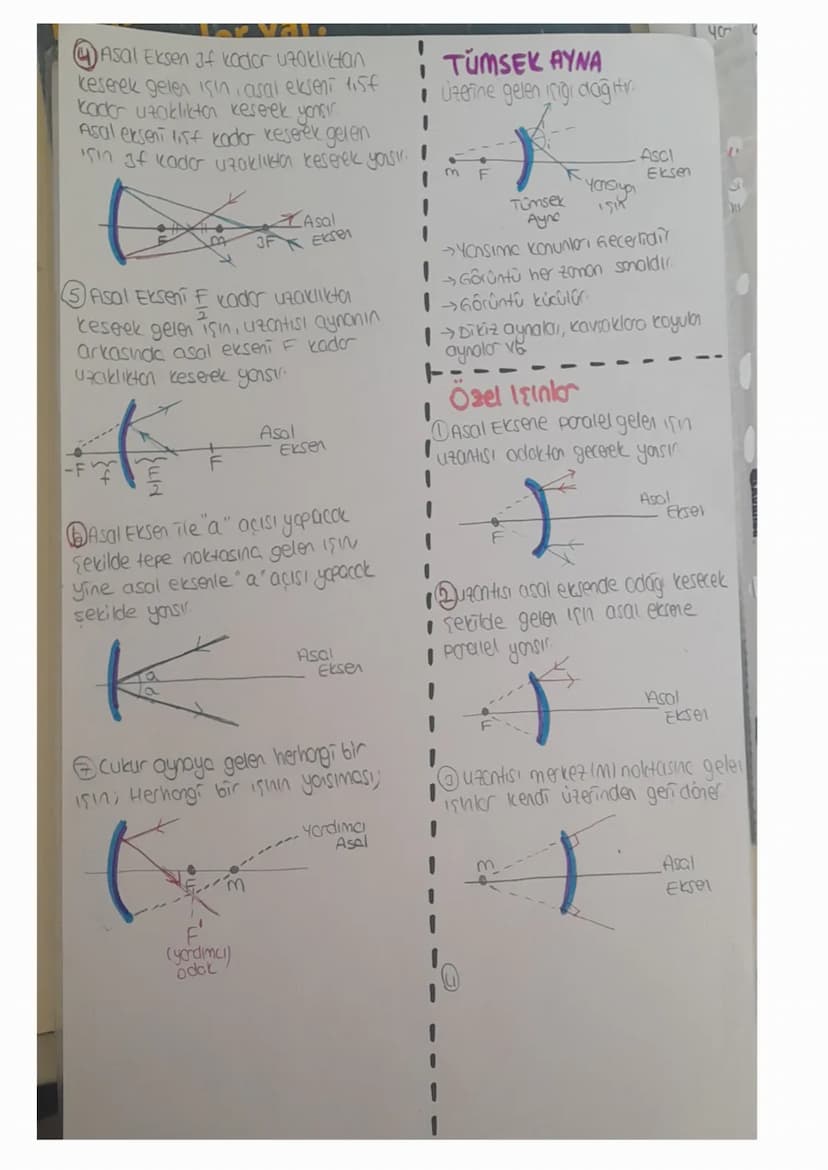 ④ Asal Eksen 3f kadar uzaklıktan
keserek gelen ışın, asal ekseni 1,5f
kadar uzaklıktan keserek yansır.
Asal ekseni 1,5f kadar keserek gelen
ışın 3f kadar uzaklıktan keserek yansır.
F
M
3F
Asal
Eksen
⑤ Asal Ekseni F/2 kadar uzaklıkta
keserek gelen ışın, uzantısı aynanın
arkasında asal ekseni F kadar
uzaklıktan keserek yansır.
Asal
Eksen
-F
f
F/2
F
⑥ Asal Eksen ile "a" açısı yapacak
şekilde tepe noktasına gelen ışın
yine asal eksenle "a" açısı yapacak
şekilde yansır
a
a
Asal
Eksen
⑦ Çukur aynaya gelen herhangi bir
ışın; Herhangi bir ışının yansıması;
Yardımcı
Asal
F
M
F'
(yardımcı)
odak
TÜMSEK AYNA
Üzerine gelen ışığı dağıtır.
M
F
i
Asal
Eksen
Yansıyan
ışın
Tümsek
Ayna
→ Yansıma kanunları Geçerlidir
→ Görüntü her zaman sanaldır.
→ Görüntü küçülür.
→ Dikiz aynaları, kavşaklara koyulan
aynalar vb
Özel Işınlar
① Asal Eksene paralel gelen ışın
uzantısı odaktan geçerek yansır
F
Asal
Eksen
② Uzantısı asal eksende odağı kesecek
şekilde gelen ışın asal eksene
paralel yansır.
F
Asal
Eksen
③ Uzantısı merkez (M) noktasına gelen
ışınlar kendi üzerinden geri döner
M
Asal
Eksen
④